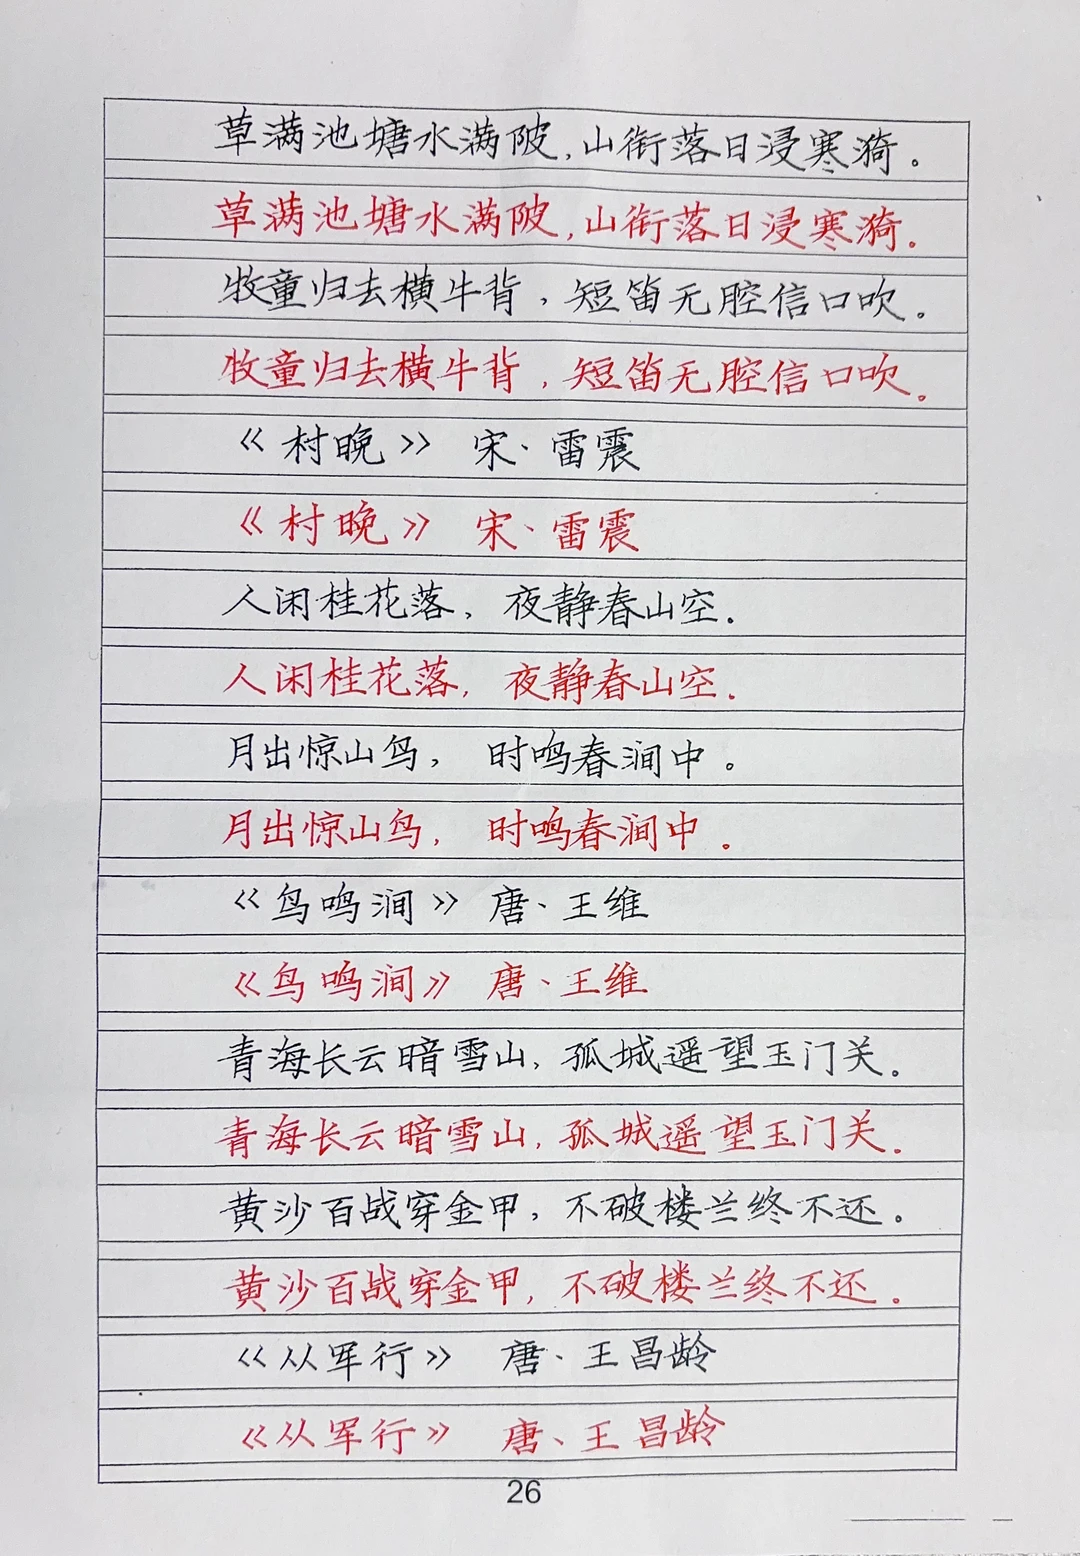 草满池塘水满陂,山衔落日浸寒漪。
草满池塘水满陂,山衔落日浸寒漪.
牧童归去横牛背,短笛无腔信口吹。
牧童归去横牛背,短笛无腔信口吹。
《村晚》 宋、雷震
《村晚》 宋、雷震
人闲桂花落,夜静春山空.
人闲桂花落,夜静春山空.
月出惊山鸟,时鸣春涧中。
月出惊山鸟,时鸣春涧中.
《鸟鸣涧》唐、王维
《鸟鸣涧》唐、王维
青海长云暗雪山,孤城遥望玉门关。
青海长云暗雪山,孤城遥望玉门关.
黄沙百战穿金甲,不破楼兰终不还。
黄沙百战穿金甲,不破楼兰终不还。
《从军行》 唐、王昌龄
《从军行》 唐、王昌龄
26